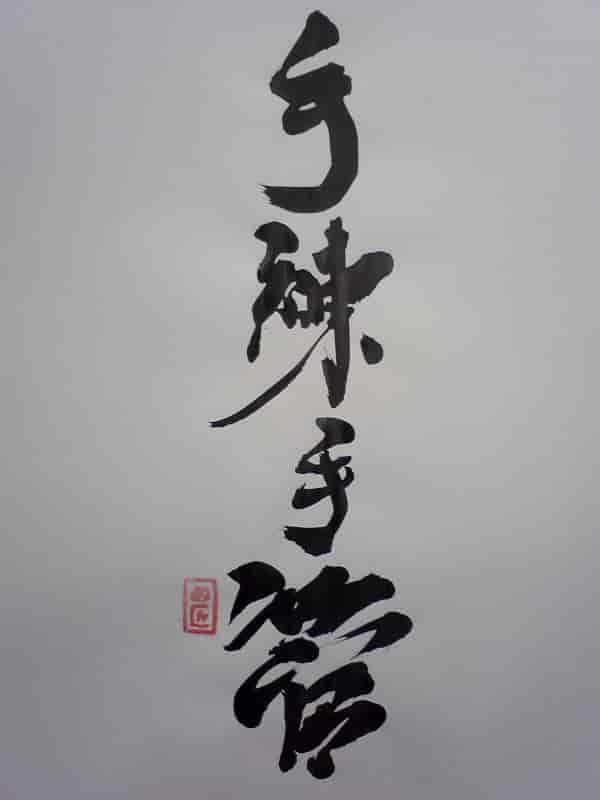 手練手管